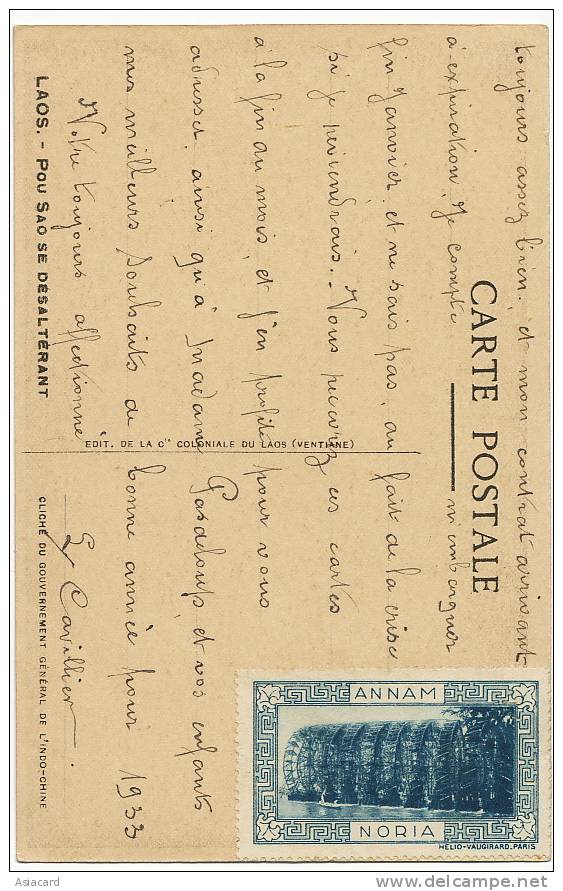 CARTE POSTALE
toujours assez bien, et mon contrat arrivant
à expiration, je compte m'embarquer
fin Janvier, et ne sais pas, au fait de la crise
si je reviendrais. - Vous recevrez ces cartes
à la fin du mois, et j'en profite pour vous
adresser, ainsi qu'à Madame Pasdeloup, et vos enfants
mes meilleurs souhaits de bonne année pour 1933
Votre toujours affectionné
Cavillier
LAOS. - POU SAO SE DÉSALTÉRANT
CLICHÉ DU GOUVERNEMENT GÉNÉRAL DE L'INDO-CHINE
EDIT. DE LA Cie COLONIALE DU LAOS (VENTIANE)
ANNAM
NORIA
HELIO-VAUGIRARD, PARIS
Asiacard
delcampe.net